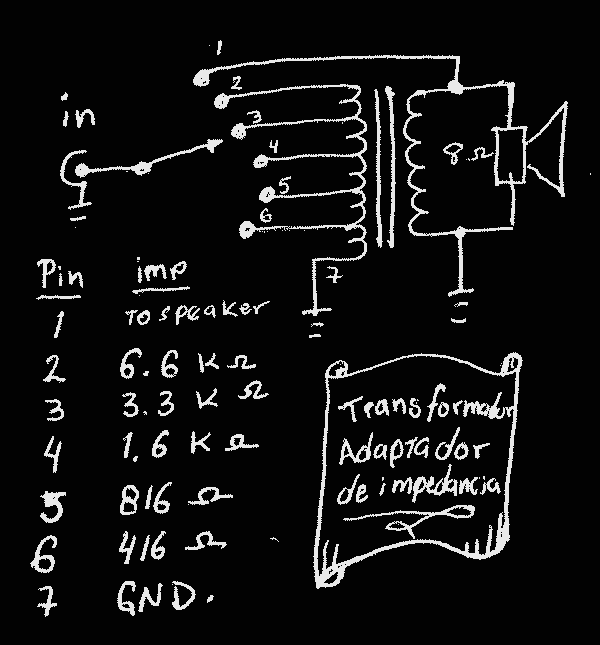 1
2
in
3
4
8 Ω
5
6
7
Pin imp
1 TO SPEAKER
2 6.6 K Ω
3 3.3 K Ω
4 1.6 K Ω
5 816 Ω
6 416 Ω
7 GND.
Transformador
Adaptador
de impedancia